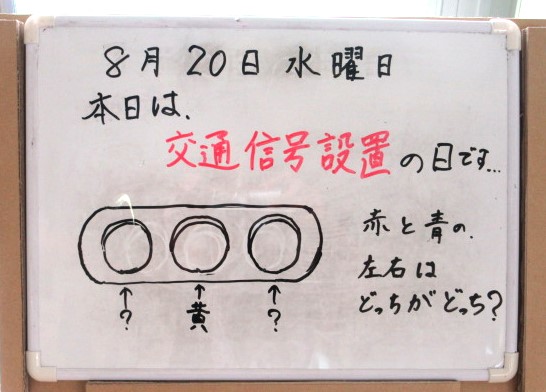 8月20日 水曜日
本日は、
交通信号設置の日です…
赤と青の、
左右は
どっちがどっち?
↑ ↑ ↑
? 黄 ?